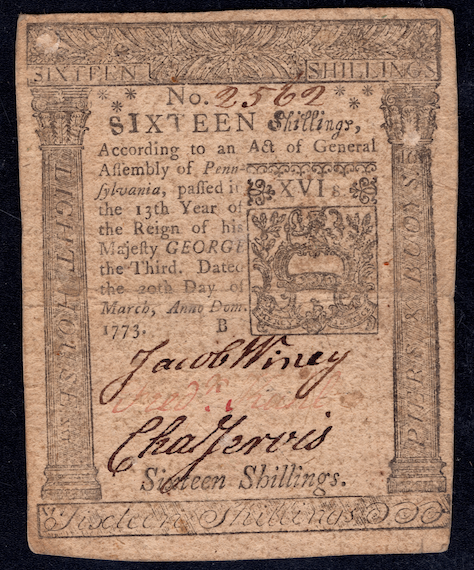 SIXTEEN SHILLINGS
No. 2562
SIXTEEN Shillings,
According to an Act of General
Aſſembly of Penn-
ſylvania, paſſed in
the 13th Year of
the Reign of his
Majeſty GEORGE
the Third. Dated
the 20th Day of
March, Anno Dom.
1773. B
XVI s.
LIGHT HOUSE
PIERS & BUOYS
Jacob Winey
Cha Jervis
Sixteen Shillings.
Sixteen Shillings